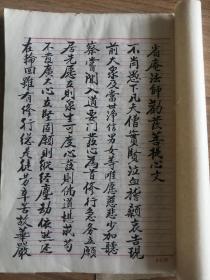 省庵法師勸發菩提心文
不肖愚下凡夫僧實賢泣血稽顙哀告現
前大眾及當世淨信男女等惟願慈悲少加聽
察嘗聞入道要門發心為首修行急務立願
居先願立則眾生可度心發則佛道堪成苟
不發廣大心立堅固願則縱經塵劫依然還
在輪回雖有修行總是徒勞辛苦故華嚴